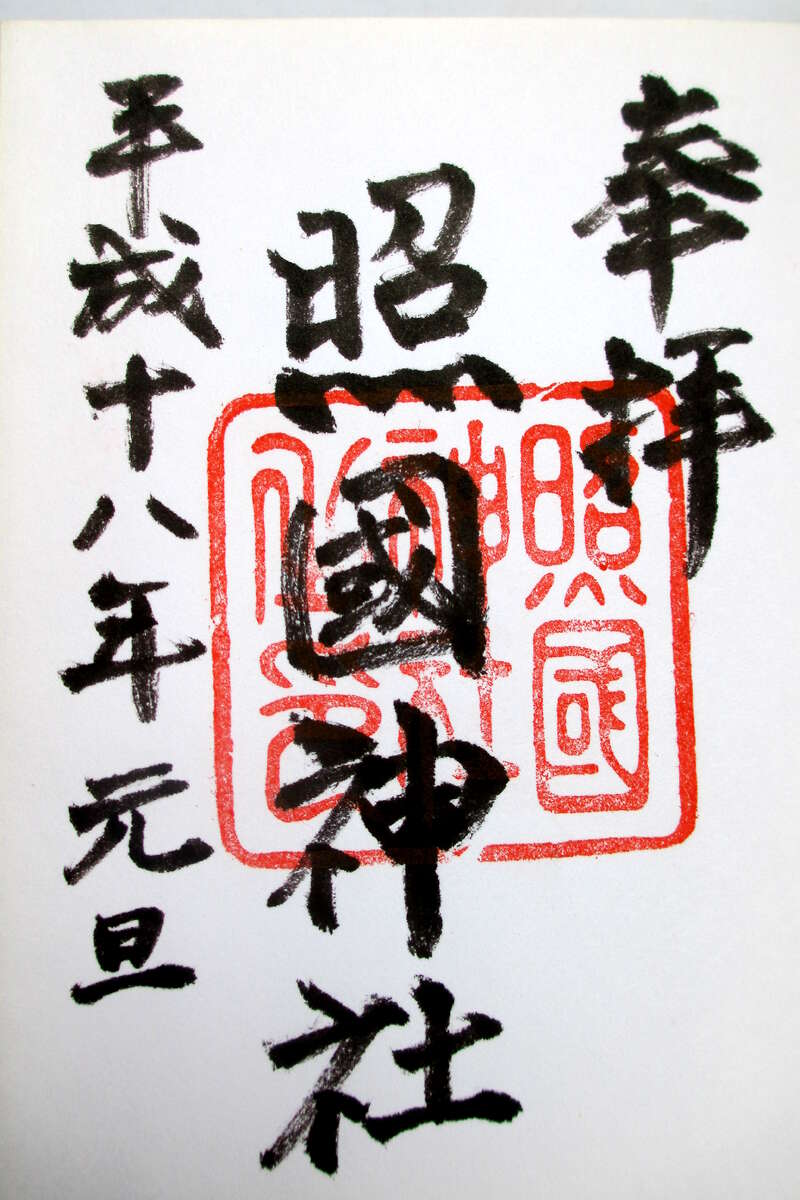 奉拝
照國神社
平成十八年元旦
照國
神社